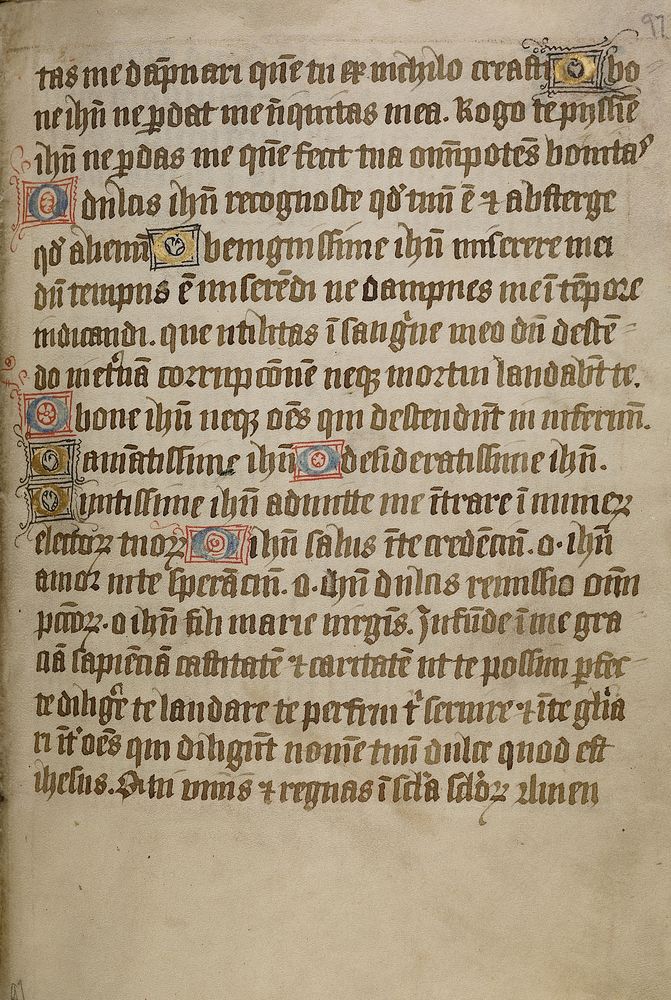 97
tas me dāpnari quē tu ex nichilo creasti O bo
ne ihū ne ꝑdat me īiquitas mea. Rogo te pijssīe
ihū ne ꝑdas me quē fecit tua omīpotēs bonitas
O dulcis ihū recognosce qd̓ tuū ē ⁊ absterge
qd̓ alienū O benignissime ihū miserere mei
dū tempus ē miserēdi ne dampnes me ī tēpore
iudicandi. que utilitas ī sāguīe meo dū descē-
do in et̓nā corrupcōnē neqꝫ mortui laudabūt te.
O bone ihū neqꝫ oēs qui descendūt in infernū.
O amātissime ihū O desideratissime ihū.
O mitissime ihū admitte me ītrare ī numeꝝ
electoꝝ tuoꝝ O ihū salus ī te credēciū. o. ihū
amor in te sperāciū. o. ihū dulcis remissio om̄i
pctōꝝ. o ihū fili marie uirgīs. Infūde ī me gra
ciā sapiēciā castitatē ⁊ caritatē ut te possim ꝑfec-
te diligᵉre te laudare te perfrui t̓ seruire ⁊ ī te gl̓ia
ri ⁊ oēs qui diligūt nomē tuū dulce quod est
ihesus. Qui tu uiuis ⁊ regnas ī scl̓a scl̓oꝝ Amen
97